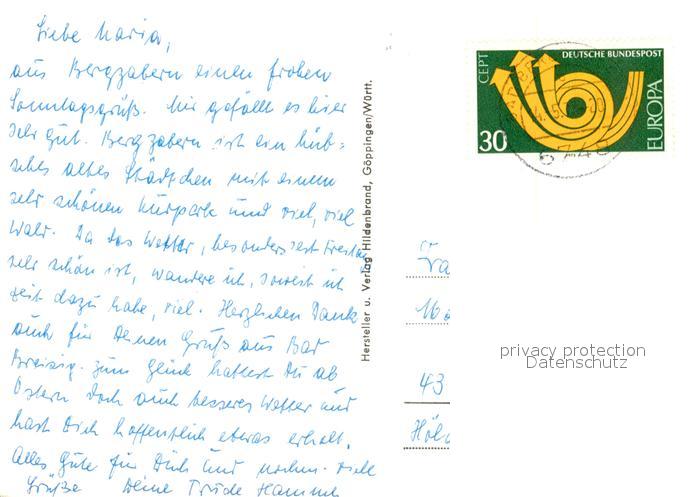 Liebe Maria,
aus Bergzabern einen frohen
Sonntagsgruß. Mir gefällt es hier
sehr gut. Bergzabern ist ein hüb=
sches altes Städtchen mit einem
sehr schönen Kurpark und viel, viel
Wald. Da das Wetter, besonders seit Freitag
sehr schön ist, wandere ich, soweit ich
Zeit dazu habe, viel. Herzlichen Dank
auch für Deinen Gruß aus Bad
Breisig. Zum Glück hattest Du ab
Ostern doch auch besseres Wetter und
hast Dich hoffentlich etwas erholt.
Alles Gute für Dich und nochm. viele
Grüße Deine Trude
Hersteller u. Verlag Hildenbrand, Göppingen/Württ.
DEUTSCHE BUNDESPOST
CEPT
EUROPA
30
6748
43
privacy protection
Datenschutz